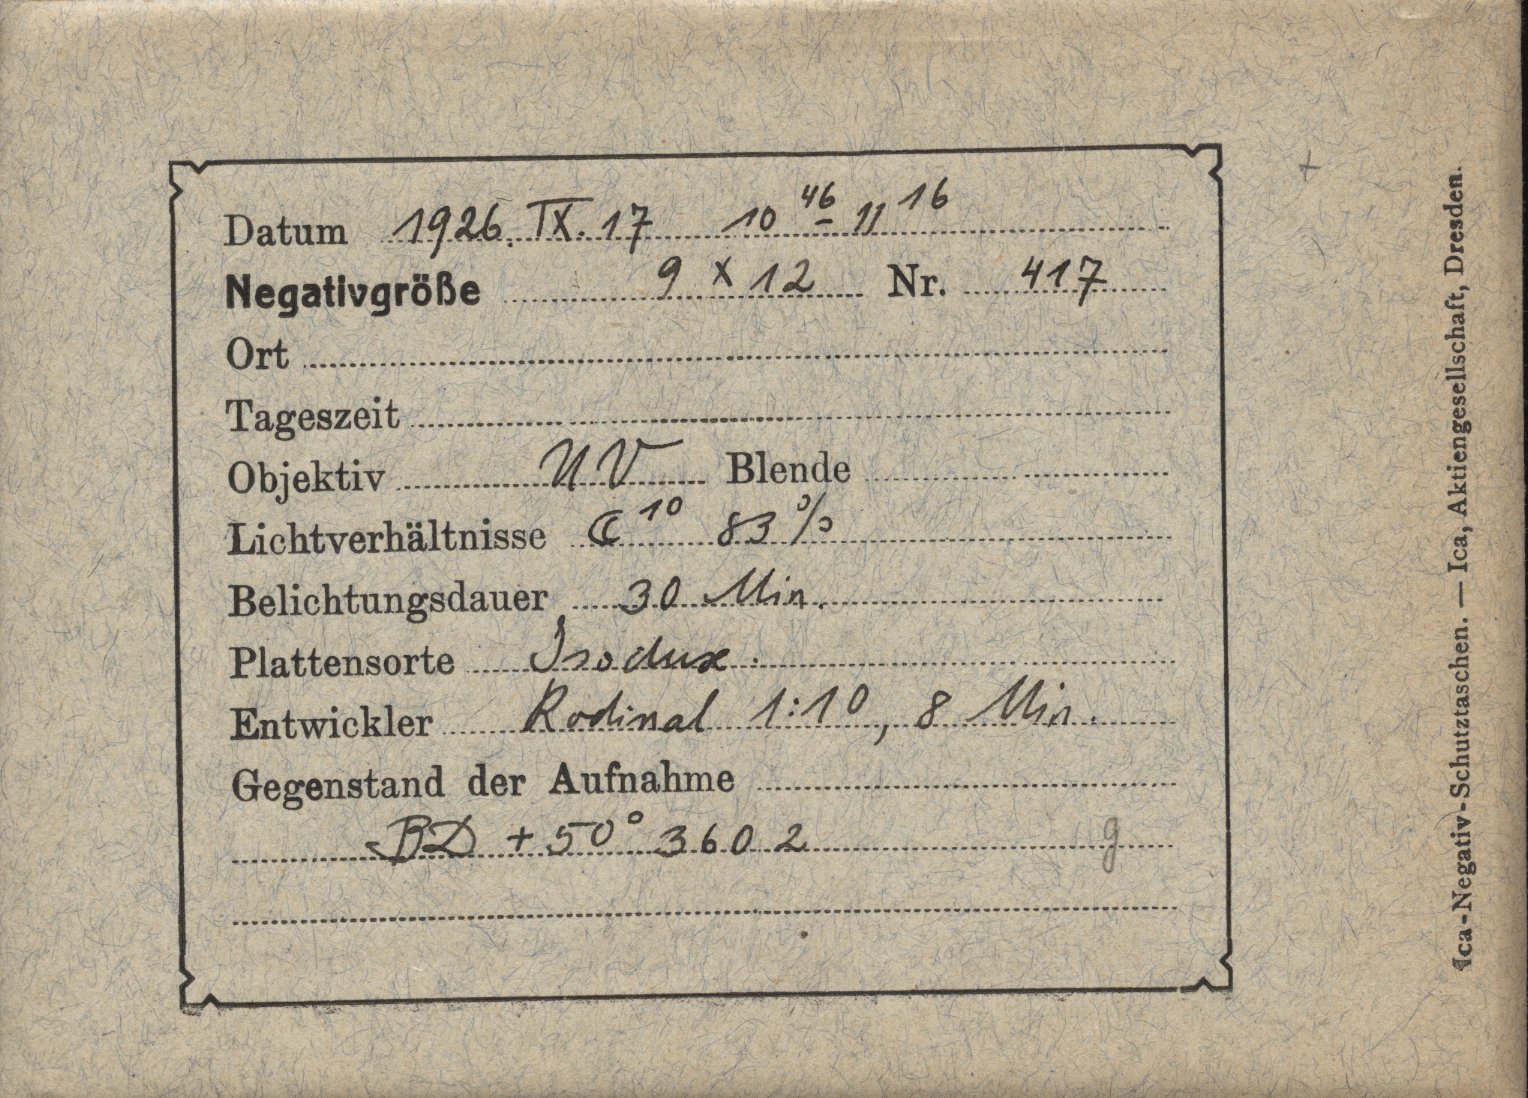 Datum 1926. IX. 17 10 46 - 11 16
Negativgröße 9 x 12 Nr. 417
Ort
Tageszeit
Objektiv UV Blende
Lichtverhältnisse ☾ 10 83 %
Belichtungsdauer 30 Min.
Plattensorte Isodux.
Entwickler Rodinal 1:10, 8 Min.
Gegenstand der Aufnahme
BD + 50° 3602 g
Ica-Negativ-Schutztaschen. — Ica, Aktiengesellschaft, Dresden.